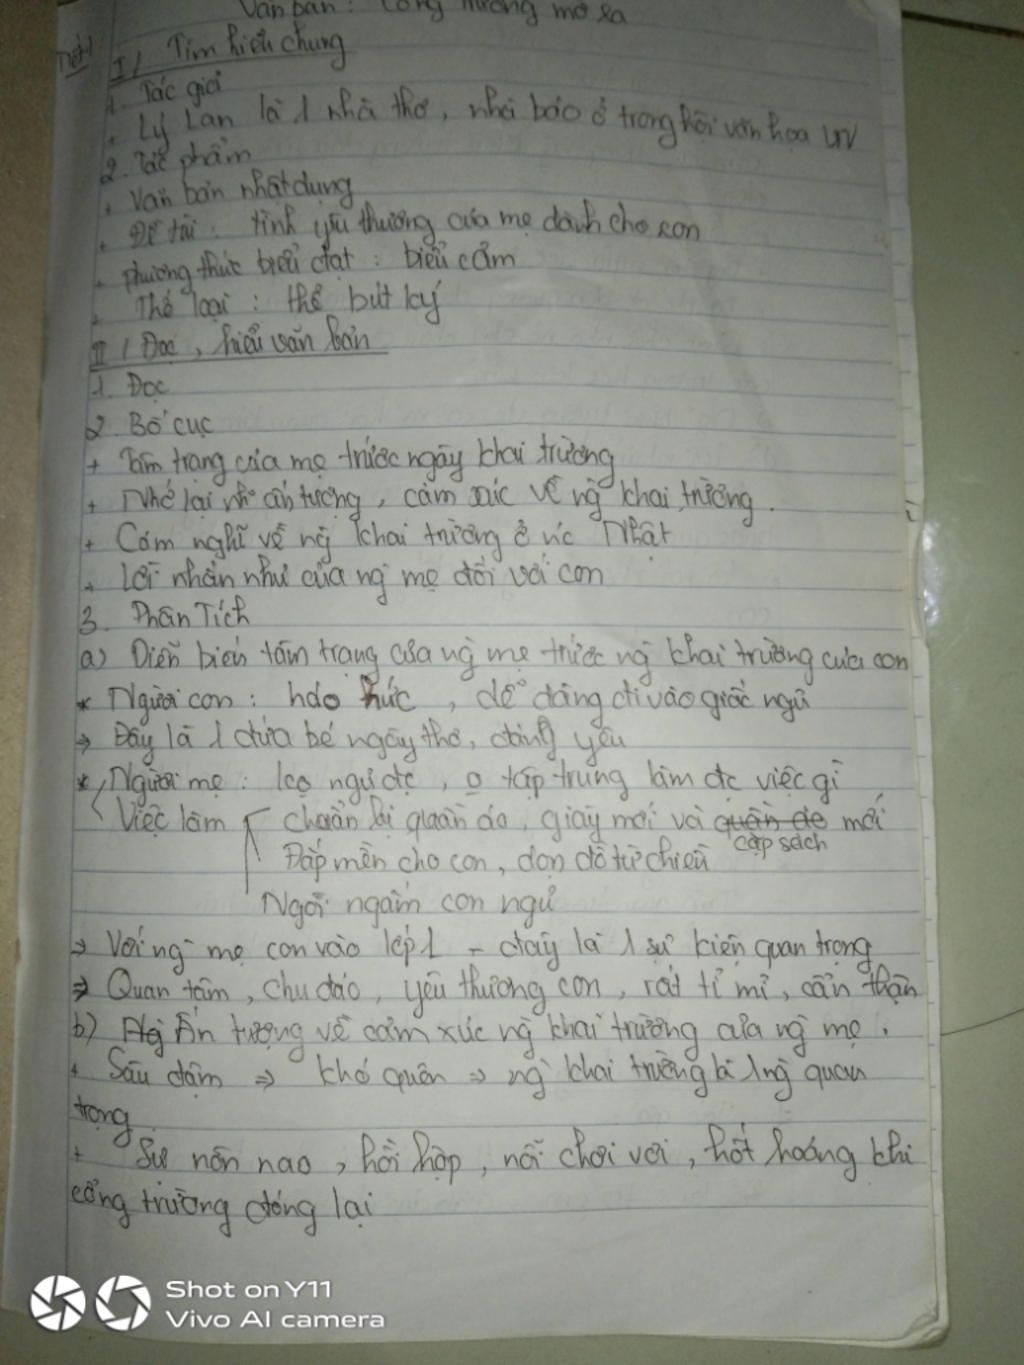 Văn bản : Cổng trường mở ra
Tiết 1
I / Tìm hiểu chung
1. Tác giả
+ Lý Lan là 1 nhà thơ, nhà báo ở trong hội văn học VN
2. Tác phẩm
+ Văn bản nhật dụng
+ Đề tài : tình yêu thương của mẹ dành cho con
+ Phương thức biểu đạt : biểu cảm
+ Thể loại : thể bút ký
II / Đọc, hiểu văn bản
1. Đọc
2. Bố cục
+ Tâm trạng của mẹ trước ngày khai trường
+ Nhớ lại ấn tượng, cảm xúc về ng̀ khai trường.
+ Cảm nghĩ về ng̀ khai trường ở nc Nhật
+ Lời nhắn nhủ của ng̀ mẹ đối với con
3. Phân Tích
a) Diễn biến tâm trạng của ng̀ mẹ trước ng̀ khai trường của con
* Người con : háo hức, dễ dàng đi vào giấc ngủ
→ Đây là 1 đứa bé ngây thơ, đáng yêu
* Người mẹ : ko ngủ đc, o tập trung làm đc việc gì
Việc làm chuẩn bị quần áo, giày mới và quần áo mới
cặp sách
Đắp mền cho con, dọn đồ từ chiều
Ngồi ngắm con ngủ
→ Với ng̀ mẹ con vào lớp 1 - đây là 1 sự kiện quan trọng
⇒ Quan tâm, chu đáo, yêu thương con, rất tỉ mỉ, cẩn thận
b) Ấn tượng về cảm xúc ng̀ khai trường của ng̀ mẹ.
+ Sâu đậm ⇒ khó quên ⇒ ng̀ khai trường là 1 ng̀ quan
trọng
+ Sự nôn nao, hồi hộp, nỗi chơi vơi, hốt hoảng khi
cổng trường đóng lại
Shot on Y11
Vivo AI camera